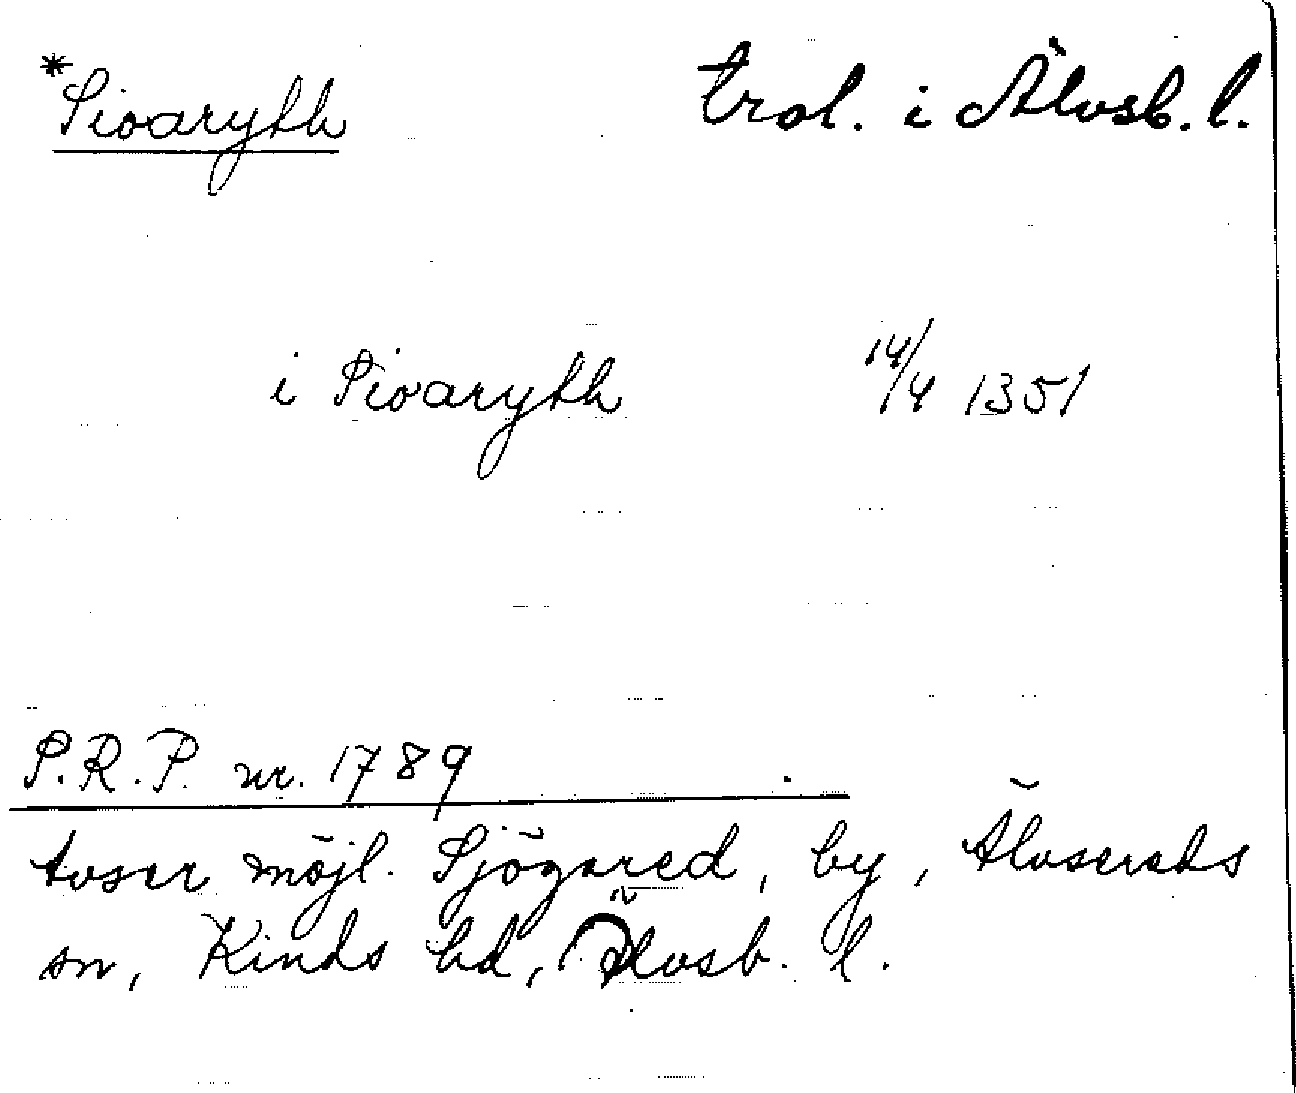 *Sioaryth trol. i Älvsb. l.
i Sioaryth 14/4 1351
S.R.P. nr. 1789
avser möjl. Sjögared, by, Älvsereds
sn, Kinds hd, Älvsb. l.